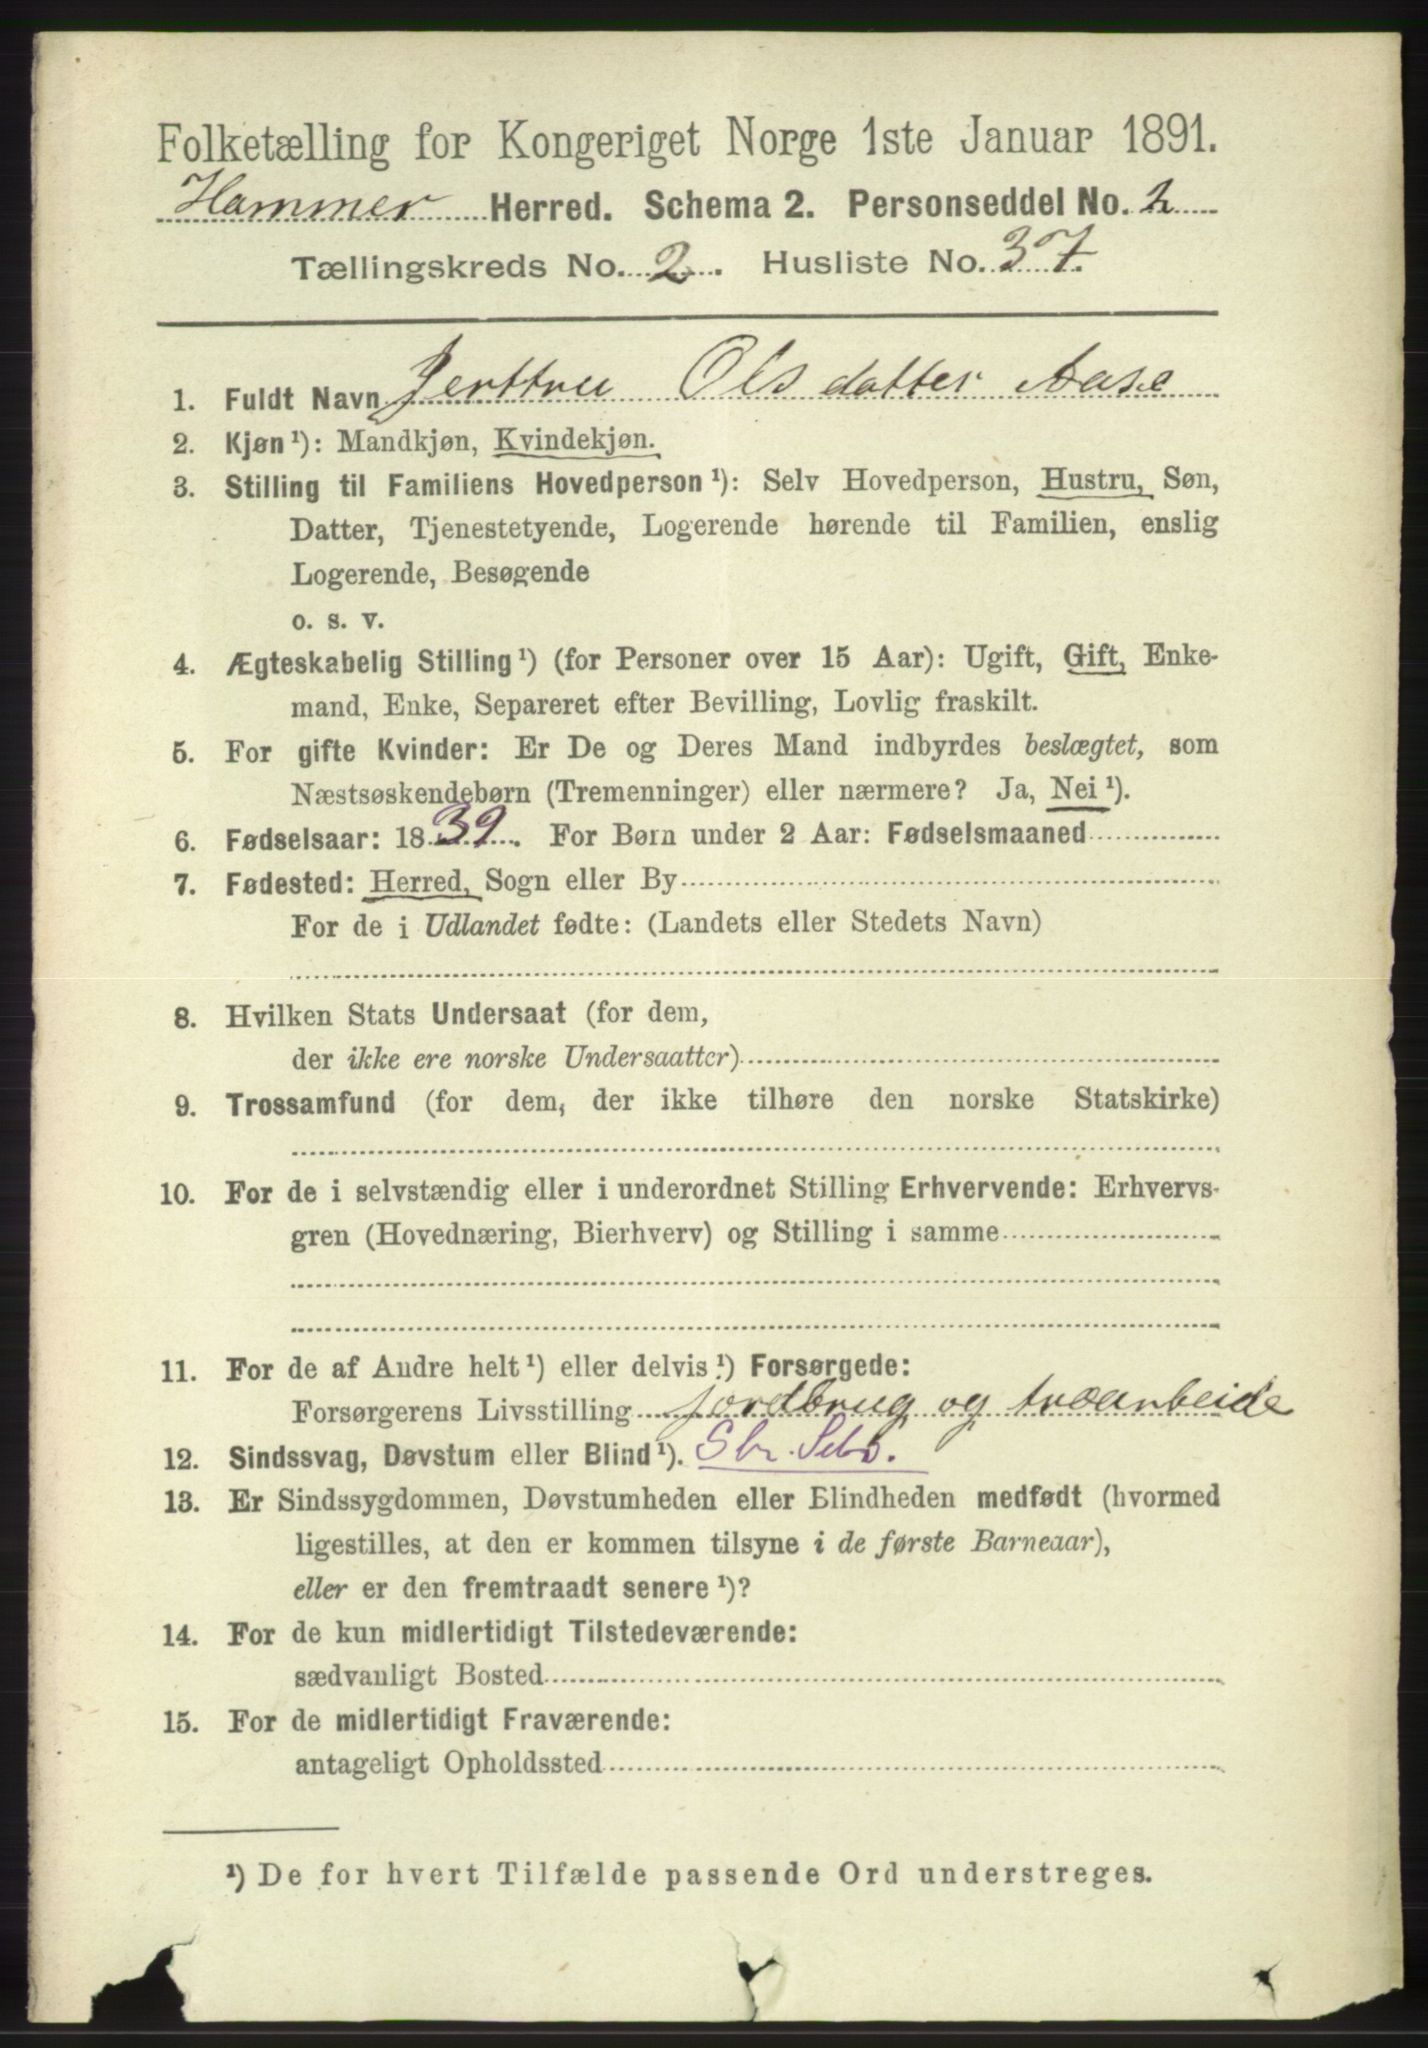 Folketælling for Kongeriget Norge 1ste Januar 1891.
Hammer Herred. Schema 2. Personseddel No. 2
Tællingskreds No. 2. Husliste No. 37.
1. Fuldt Navn Jerttru Olsdatter Aase
2. Kjøn ¹): Mandkjøn, Kvindekjøn.
3. Stilling til Familiens Hovedperson ¹): Selv Hovedperson, Hustru, Søn,
Datter, Tjenestetyende, Logerende hørende til Familien, enslig
Logerende, Besøgende
o. s. v.
4. Ægteskabelig Stilling ¹) (for Personer over 15 Aar): Ugift, Gift, Enke-
mand, Enke, Separeret efter Bevilling, Lovlig fraskilt.
5. For gifte Kvinder: Er De og Deres Mand indbyrdes beslægtet, som
Næstsøskendebørn (Tremenninger) eller nærmere? Ja, Nei ¹).
6. Fødselsaar: 1839. For Børn under 2 Aar: Fødselsmaaned
7. Fødested: Herred, Sogn eller By
For de i Udlandet fødte: (Landets eller Stedets Navn)
8. Hvilken Stats Undersaat (for dem,
der ikke ere norske Undersaatter)
9. Trossamfund (for dem, der ikke tilhøre den norske Statskirke)
10. For de i selvstændig eller i underordnet Stilling Erhvervende: Erhvervs-
gren (Hovednæring, Bierhverv) og Stilling i samme
11. For de af Andre helt ¹) eller delvis ¹) Forsørgede:
Forsørgerens Livsstilling jordbrug og træarbeide
12. Sindssvag, Døvstum eller Blind ¹). Sbr. Selv.
13. Er Sindssygdommen, Døvstumheden eller Blindheden medfødt (hvormed
ligestilles, at den er kommen tilsyne i de første Barneaar),
eller er den fremtraadt senere ¹)?
14. For de kun midlertidigt Tilstedeværende:
sædvanligt Bosted
15. For de midlertidigt Fraværende:
antageligt Opholdssted
¹) De for hvert Tilfælde passende Ord understreges.